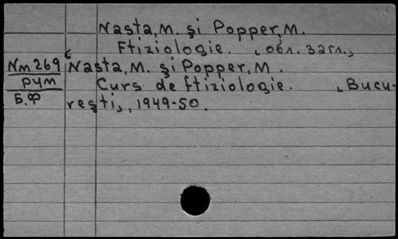 Nasta, M. şi Popper, M.
Ftiziologie. (обл. загл.)
Nm 269
рум
Б.Ф
Nasta, M. şi Popper, M.
Curs de ftiziologie. Bucu-
reşti, 1949-50.